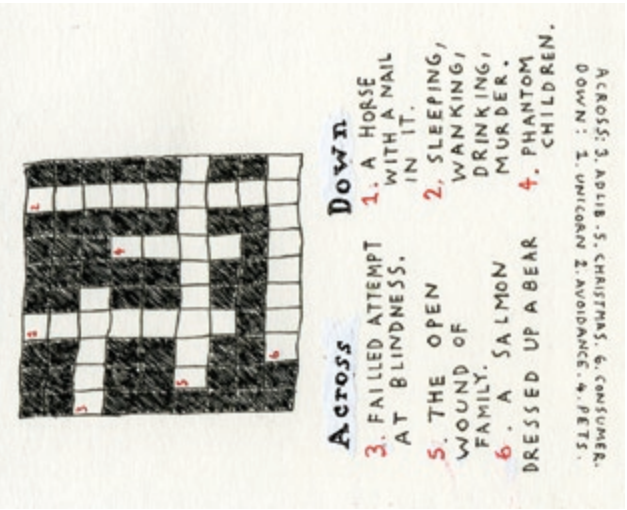 Across
3. FAILED ATTEMPT
AT BLINDNESS.
5. THE OPEN
WOUND OF
FAMILY.
6. A SALMON
DRESSED UP A BEAR
Down
1. A HORSE
WITH A NAIL
IN IT.
2. SLEEPING,
WANKING,
DRINKING,
MURDER.
4. PHANTOM
CHILDREN.
ACROSS: 3. ADLIB. 5. CHRISTMAS. 6. CONSUMER.
DOWN: 1. UNICORN 2. AVOIDANCE. 4. PETS.
3
2
5
6
4
2